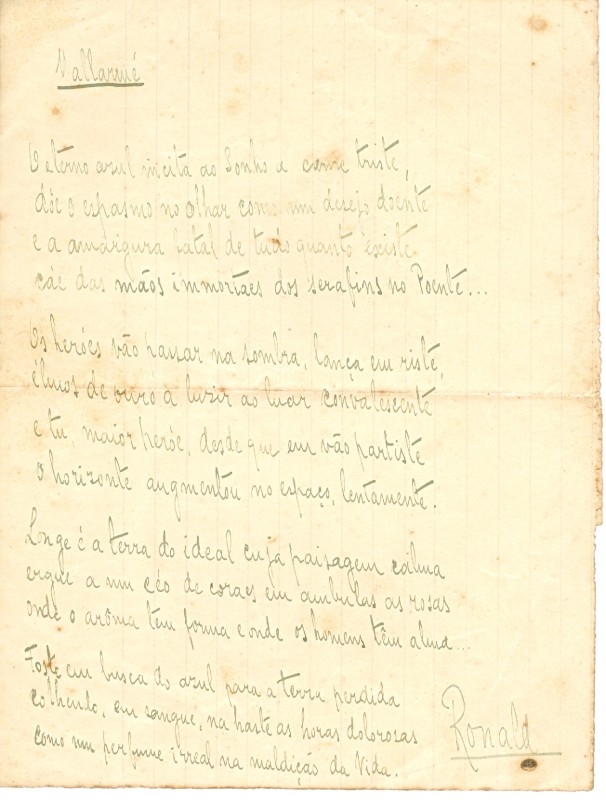 Mallarmé
O eterno azul incita ao Sonho a carne triste,
dóe o espasmo no olhar como um desejo doente
e a amargura fatal de tudo quanto existe
cáe das mãos immortaes dos serafins no Poente...
Os heróes vão pausar na sombra, lança em riste,
élmos de ouro a luzir ao luar convalescente
e tu, maior heróe, desde que em vão partiste
o horizonte augmentou no espaço, lentamente.
Longe é a terra do ideal cuja paisagem calma
ergue a um céo de coraes em ambulas as rosas
onde o arôma tem forma e onde os homens têm alma...
Foste em busca do azul para a terra perdida
colhendo, em sangue, na haste as horas dolorosas
como um perfume irreal na maldição da Vida.
Ronald